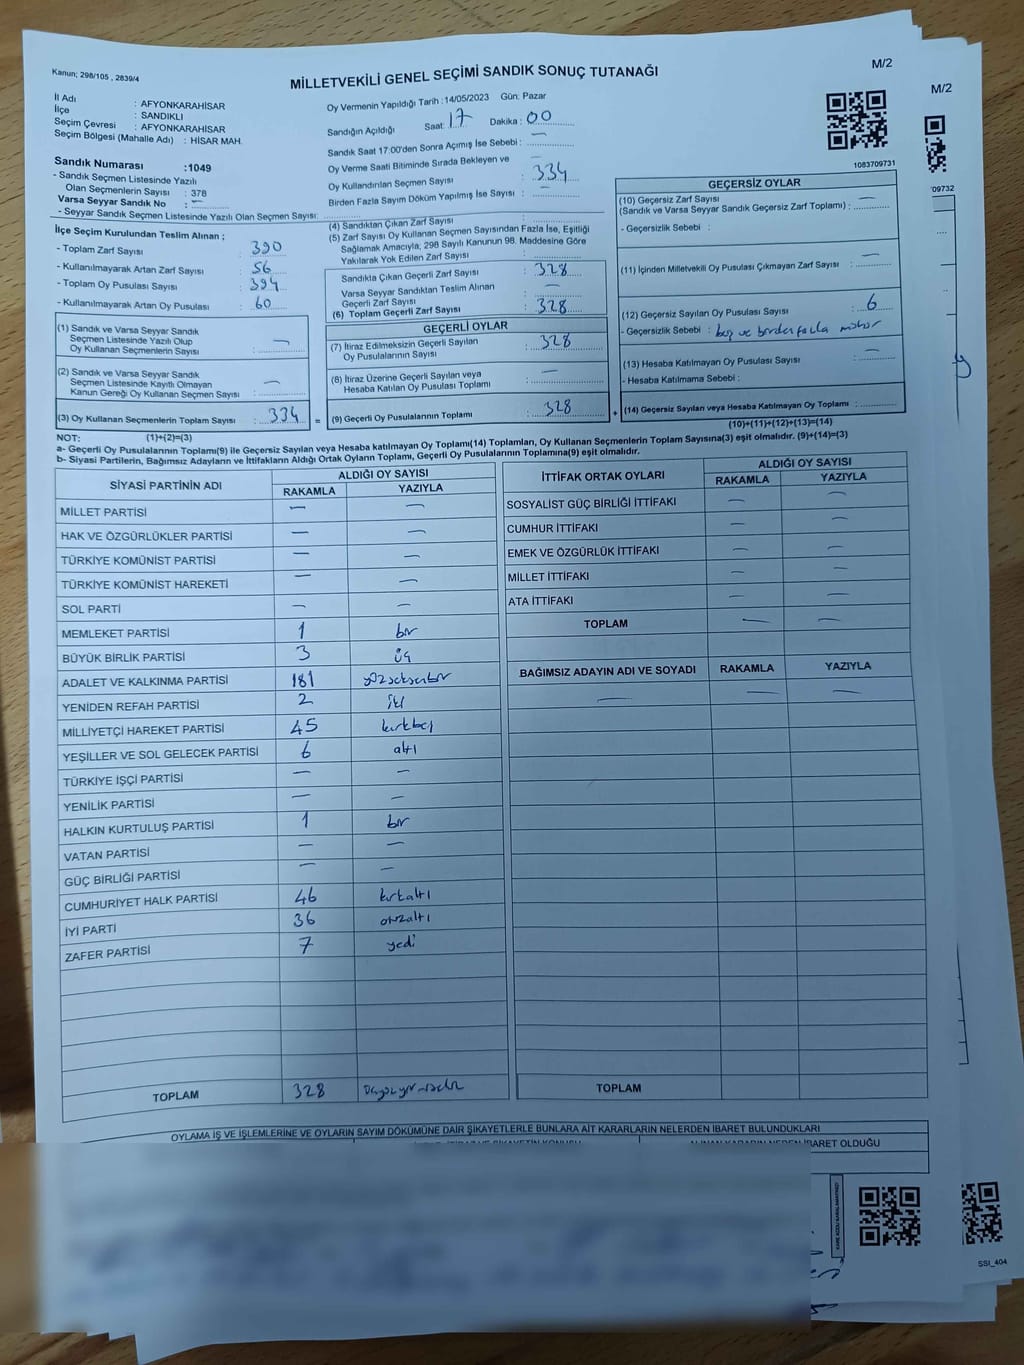 Kanun; 298/105 , 2839/4
MİLLETVEKİLİ GENEL SEÇİMİ SANDIK SONUÇ TUTANAĞI
M/2
M/2
İl Adı : AFYONKARAHİSAR
İlçe : SANDIKLI
Seçim Çevresi : AFYONKARAHİSAR
Seçim Bölgesi (Mahalle Adı) : HİSAR MAH.
Sandık Numarası :1049
- Sandık Seçmen Listesinde Yazılı
Olan Seçmenlerin Sayısı : 378
Varsa Seyyar Sandık No : –
- Seyyar Sandık Seçmen Listesinde Yazılı Olan Seçmen Sayısı:
Oy Vermenin Yapıldığı Tarih : 14/05/2023 Gün: Pazar
Sandığın Açıldığı Saat: 17 Dakika : 00
Sandık Saat 17:00'den Sonra Açımış İse Sebebi : –
Oy Verme Saati Bitiminde Sırada Bekleyen ve
Oy Kullandırılan Seçmen Sayısı : 334
Birden Fazla Sayım Döküm Yapılmış İse Sayısı : –
1083709731
09732
İlçe Seçim Kurulundan Teslim Alınan ;
- Toplam Zarf Sayısı : 390
- Kullanılmayarak Artan Zarf Sayısı : 56
- Toplam Oy Pusulası Sayısı : 394
- Kullanılmayarak Artan Oy Pusulası : 60
(1) Sandık ve Varsa Seyyar Sandık
Seçmen Listesinde Yazılı Olup
Oy Kullanan Seçmenlerin Sayısı : –
(2) Sandık ve Varsa Seyyar Sandık
Seçmen Listesinde Kayıtlı Olmayan
Kanun Gereği Oy Kullanan Seçmen Sayısı : –
(3) Oy Kullanan Seçmenlerin Toplam Sayısı : 334 =
(4) Sandıktan Çıkan Zarf Sayısı :
(5) Zarf Sayısı Oy Kullanan Seçmen Sayısından Fazla İse, Eşitliği
Sağlamak Amacıyla; 298 Sayılı Kanunun 98. Maddesine Göre
Yakılarak Yok Edilen Zarf Sayısı :
Sandıkta Çıkan Geçerli Zarf Sayısı : 328
Varsa Seyyar Sandıktan Teslim Alınan
Geçerli Zarf Sayısı : –
(6) Toplam Geçerli Zarf Sayısı : 328
GEÇERLİ OYLAR
(7) İtiraz Edilmeksizin Geçerli Sayılan
Oy Pusulalarının Sayısı : 328
(8) İtiraz Üzerine Geçerli Sayılan veya
Hesaba Katılan Oy Pusulası Toplamı : –
(9) Geçerli Oy Pusulalarının Toplamı : 328 +
GEÇERSİZ OYLAR
(10) Geçersiz Zarf Sayısı
(Sandık ve Varsa Seyyar Sandık Geçersiz Zarf Toplamı) : –
- Geçersizlik Sebebi :
(11) İçinden Milletvekili Oy Pusulası Çıkmayan Zarf Sayısı : –
(12) Geçersiz Sayılan Oy Pusulası Sayısı : 6
- Geçersizlik Sebebi : boş ve birden fazla mühür
(13) Hesaba Katılmayan Oy Pusulası Sayısı : –
- Hesaba Katılmama Sebebi :
(14) Geçersiz Sayılan veya Hesaba Katılmayan Oy Toplamı :
(10)+(11)+(12)+(13)=(14)
NOT: (1)+(2)=(3)
a- Geçerli Oy Pusulalarının Toplamı(9) ile Geçersiz Sayılan veya Hesaba katılmayan Oy Toplamı(14) Toplamları, Oy Kullanan Seçmenlerin Toplam Sayısına(3) eşit olmalıdır. (9)+(14)=(3)
b- Siyasi Partilerin, Bağımsız Adayların ve İttifakların Aldığı Ortak Oyların Toplamı, Geçerli Oy Pusulalarının Toplamına(9) eşit olmalıdır.
SİYASİ PARTİNİN ADI ALDIĞI OY SAYISI
RAKAMLA YAZIYLA
MİLLET PARTİSİ – –
HAK VE ÖZGÜRLÜKLER PARTİSİ – –
TÜRKİYE KOMÜNİST PARTİSİ – –
TÜRKİYE KOMÜNİST HAREKETİ – –
SOL PARTİ – –
MEMLEKET PARTİSİ 1 bir
BÜYÜK BİRLİK PARTİSİ 3 üç
ADALET VE KALKINMA PARTİSİ 181 yüzseksenbir
YENİDEN REFAH PARTİSİ 2 iki
MİLLİYETÇİ HAREKET PARTİSİ 45 kırkbeş
YEŞİLLER VE SOL GELECEK PARTİSİ 6 altı
TÜRKİYE İŞÇİ PARTİSİ – –
YENİLİK PARTİSİ – –
HALKIN KURTULUŞ PARTİSİ 1 bir
VATAN PARTİSİ – –
GÜÇ BİRLİĞİ PARTİSİ – –
CUMHURİYET HALK PARTİSİ 46 kırkaltı
İYİ PARTİ 36 otuzaltı
ZAFER PARTİSİ 7 yedi
TOPLAM 328 üçyüzyirmisekiz
İTTİFAK ORTAK OYLARI ALDIĞI OY SAYISI
RAKAMLA YAZIYLA
SOSYALİST GÜÇ BİRLİĞİ İTTİFAKI – –
CUMHUR İTTİFAKI – –
EMEK VE ÖZGÜRLÜK İTTİFAKI – –
MİLLET İTTİFAKI – –
ATA İTTİFAKI – –
TOPLAM – –
BAĞIMSIZ ADAYIN ADI VE SOYADI RAKAMLA YAZIYLA
– – –
TOPLAM
OYLAMA İŞ VE İŞLEMLERİNE VE OYLARIN SAYIM DÖKÜMÜNE DAİR ŞİKAYETLERLE BUNLARA AİT KARARLARIN NELERDEN İBARET BULUNDUKLARI
ALINAN KARARIN NEDEN İBARET OLDUĞU
SSİ_404